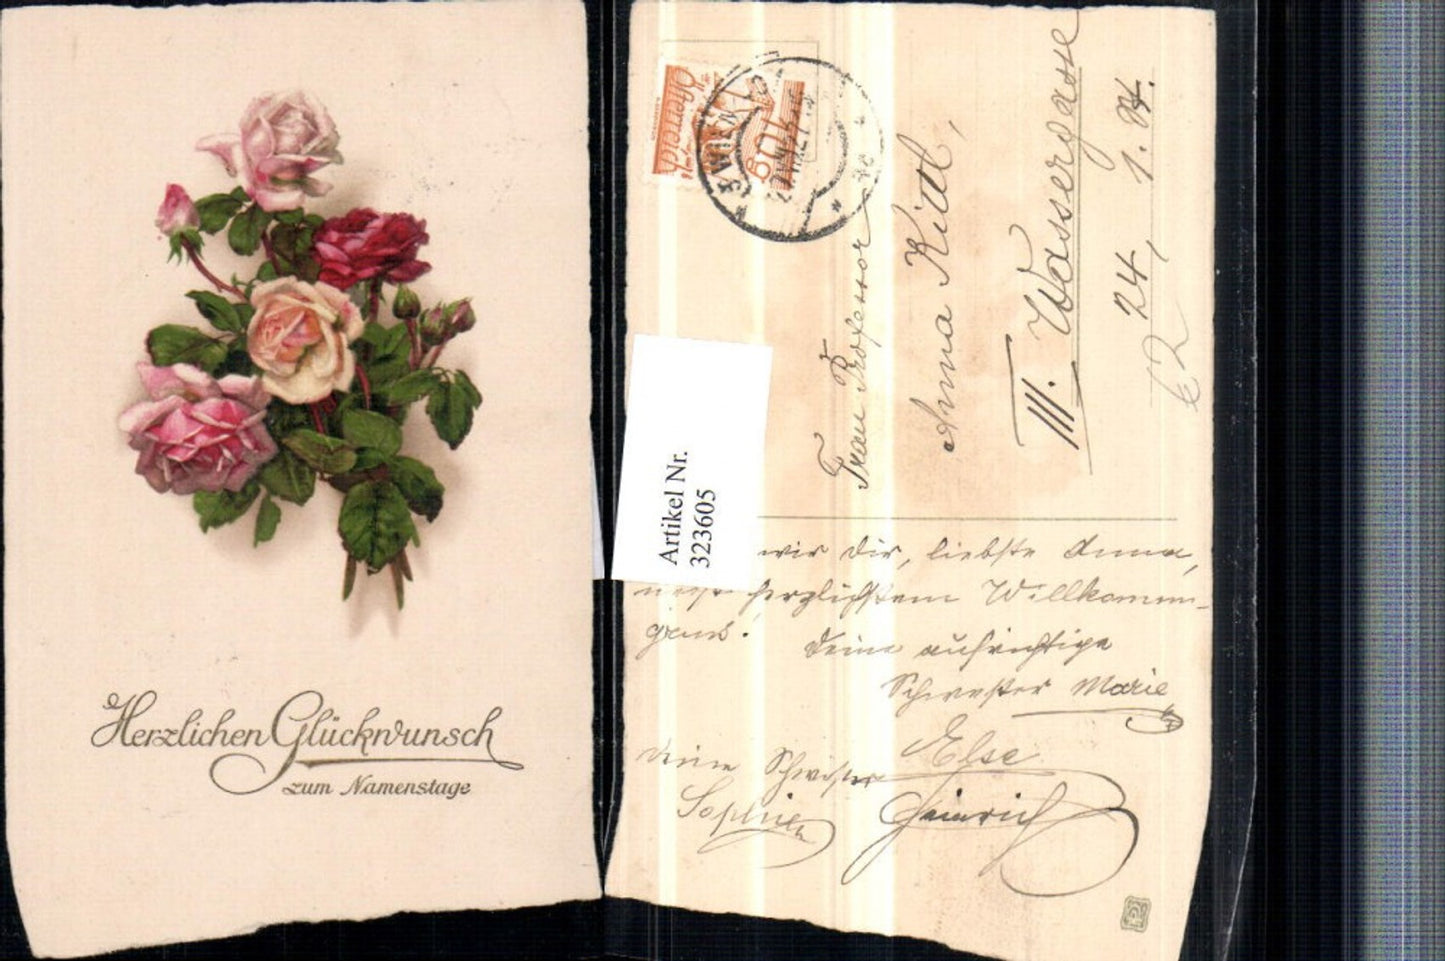 Herzlichen Glückwunsch
zum Namenstage
Österreich
WIEN
Frau Professor
Anna Kittl,
III. Wassergasse
24, 1.
Artikel Nr.
323605
wir Dir, liebste Anna,
herzlichstem Willkomm-
gruß.
Deine aufrichtige
Schwester Marie
Else
Deine Schwester
Sophie
Heinrich